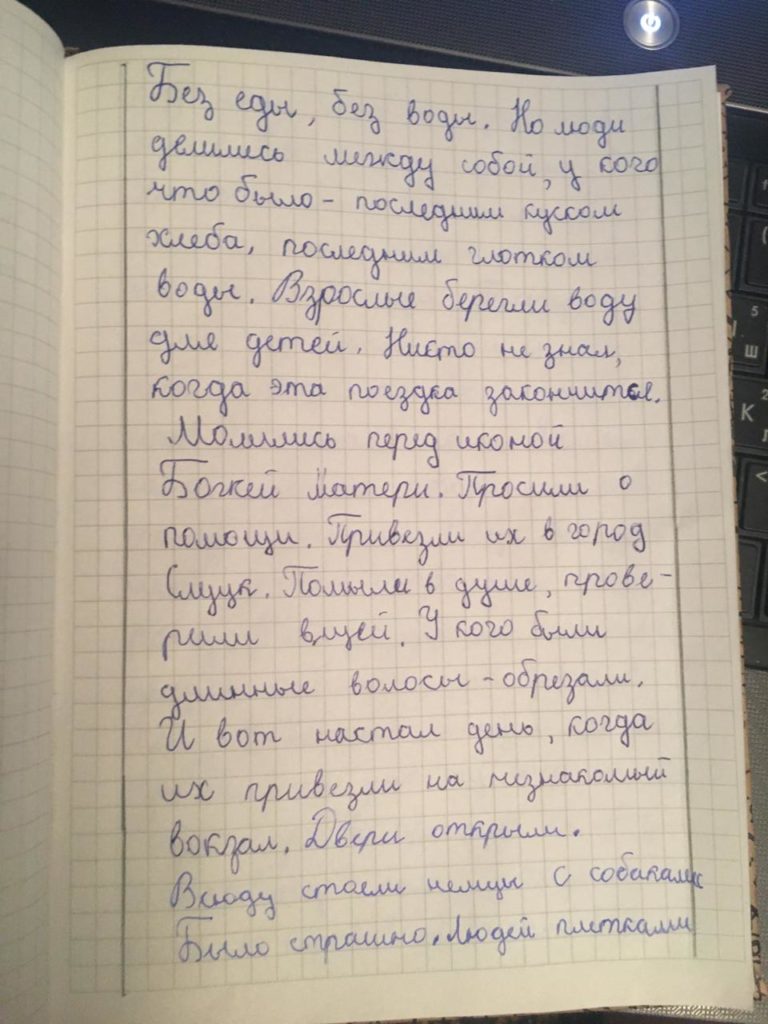 Без еды, без воды. Но люди
делились между собой, у кого
что было - последним куском
хлеба, последним глотком
воды. Взрослые берегли воду
для детей. Никто не знал,
когда эта поездка закончится.
Молились перед иконой
Божей Матери. Просили о
помощи. Привезли их в город
Слуцк. Помыли в душе, прове-
рили вшей. У кого были
длинные волосы - обрезали.
И вот настал день, когда
их привезли на незнакомый
вокзал. Двери открыли.
Всюду стояли немцы с собаками
Было страшно. Людей плетками